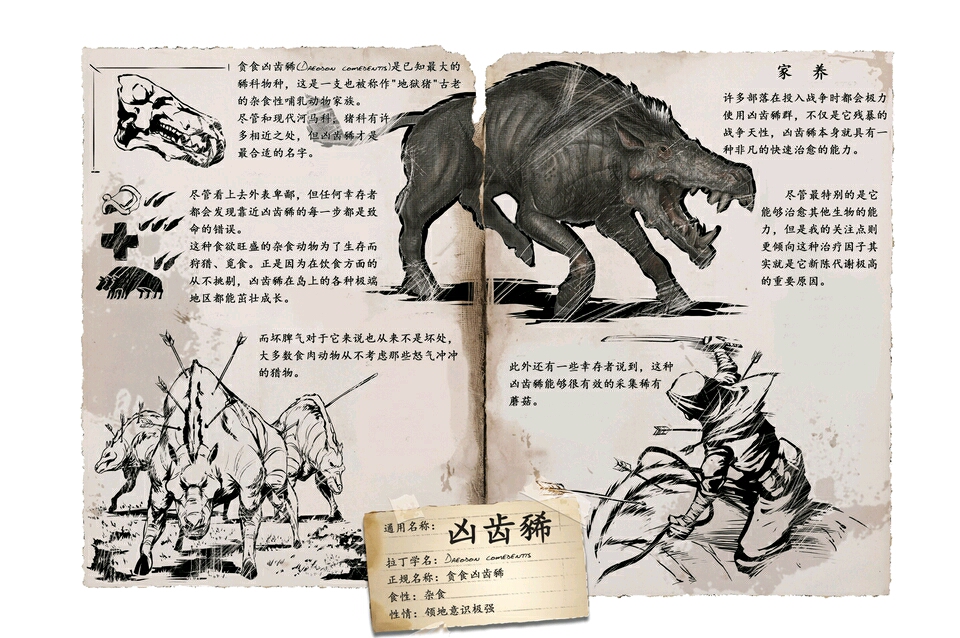 贪食凶齿豨(Daeodon comedentis)是已知最大的
豨科物种，这是一支也被称作"地狱猪"古老
的杂食性哺乳动物家族。
尽管和现代河马科，猪科有许
多相近之处，但凶齿豨才是
最合适的名字。
尽管看上去外表卑鄙，但任何幸存者
都会发现靠近凶齿豨的每一步都是致
命的错误。
这种食欲旺盛的杂食动物为了生存而
狩猎、觅食。正是因为在饮食方面的
从不挑剔，凶齿豨在岛上的各种极端
地区都能茁壮成长。
而坏脾气对于它来说也从来不是坏处，
大多数食肉动物从不考虑那些怒气冲冲
的猎物。
家 养
许多部落在投入战争时都会极力
使用凶齿豨群，不仅是它残暴的
战争天性，凶齿豨本身就具有一
种非凡的快速治愈的能力。
尽管最特别的是它
能够治愈其他生物的能
力，但是我的关注点则
更倾向这种治疗因子其
实就是它新陈代谢极高
的重要原因。
此外还有一些幸存者说到，这种
凶齿豨能够很有效的采集稀有
蘑菇。
通用名称：凶齿豨
拉丁学名：Daeodon comedentis
正规名称：贪食凶齿豨
食性：杂食
性情：领地意识极强